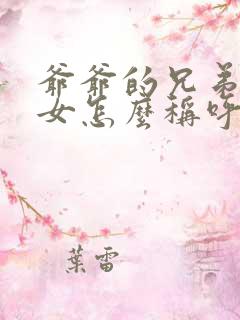 爺爺的兄弟
女怎麼稱呼
葉雷